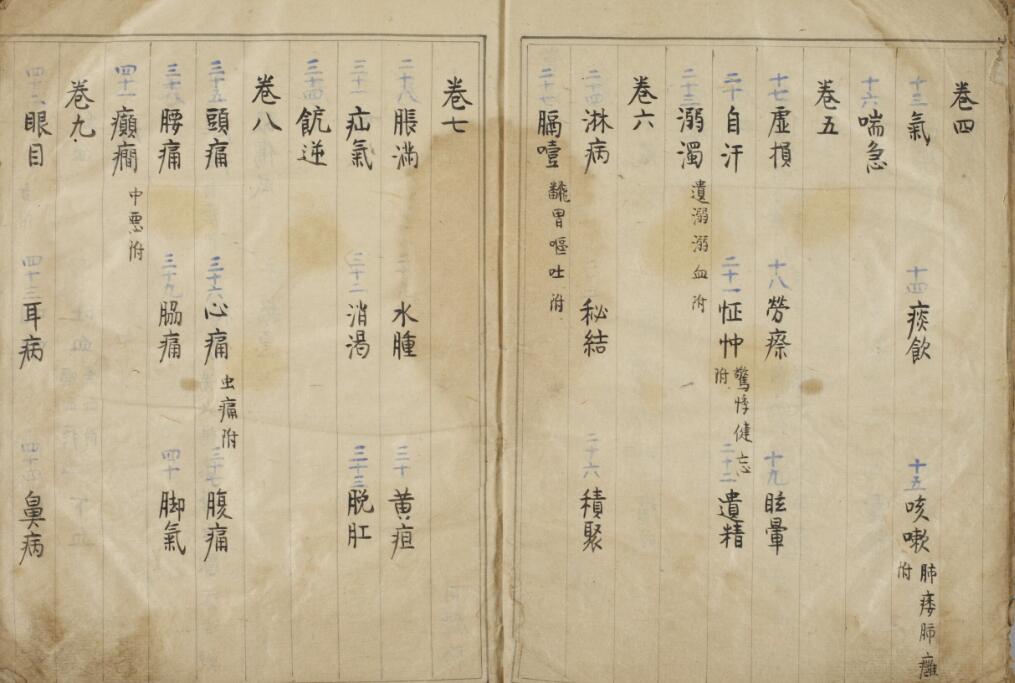 卷四
十三 氣 十四 痰飲 十五 咳嗽 肺痿肺癰附
十六 喘急
卷五
十七 虛損 十八 勞瘵 十九 眩暈
二十 自汗 二十一 怔忡 驚悸健忘附 二十二 遺精
二十三 溺濁 遺溺溺血附
卷六
二十四 淋病 秘結 二十六 積聚
二十七 膈噎 翻胃嘔吐附
卷七
二十八 脹滿 水腫 三十 黃疸
三十一 疝氣 三十二 消渴 三十三 脫肛
三十四 飢逆
卷八
三十五 頭痛 三十六 心痛 虫痛附 三十七 腹痛
三十八 腰痛 三十九 脇痛 四十 脚氣
四十一 癲癇 中惡附
卷九
四十二 眼目 四十三 耳病 四十四 鼻病